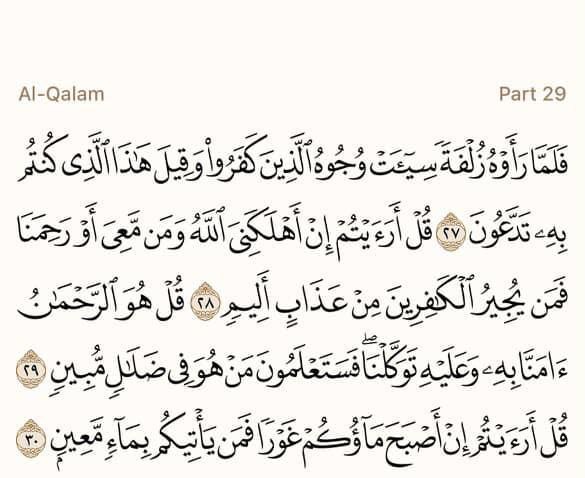 Al-Qalam
Part 29
فَلَمَّا رَأَوۡهُ زُلۡفَةٗ سِيٓـَٔتۡ وُجُوهُ ٱلَّذِينَ كَفَرُواْ وَقِيلَ هَٰذَا ٱلَّذِي كُنتُم
بِهِۦ تَدَّعُونَ ٢٧ قُلۡ أَرَءَيۡتُمۡ إِنۡ أَهۡلَكَنِيَ ٱللَّهُ وَمَن مَّعِيَ أَوۡ رَحِمَنَا
فَمَن يُجِيرُ ٱلۡكَٰفِرِينَ مِنۡ عَذَابٍ أَلِيمٖ ٢٨ قُلۡ هُوَ ٱلرَّحۡمَٰنُ
ءَامَنَّا بِهِۦ وَعَلَيۡهِ تَوَكَّلۡنَاۖ فَسَتَعۡلَمُونَ مَنۡ هُوَ فِي ضَلَٰلٖ مُّبِينٖ ٢٩
قُلۡ أَرَءَيۡتُمۡ إِنۡ أَصۡبَحَ مَآؤُكُمۡ غَوۡرٗا فَمَن يَأۡتِيكُم بِمَآءٖ مَّعِينِۭ ٣٠